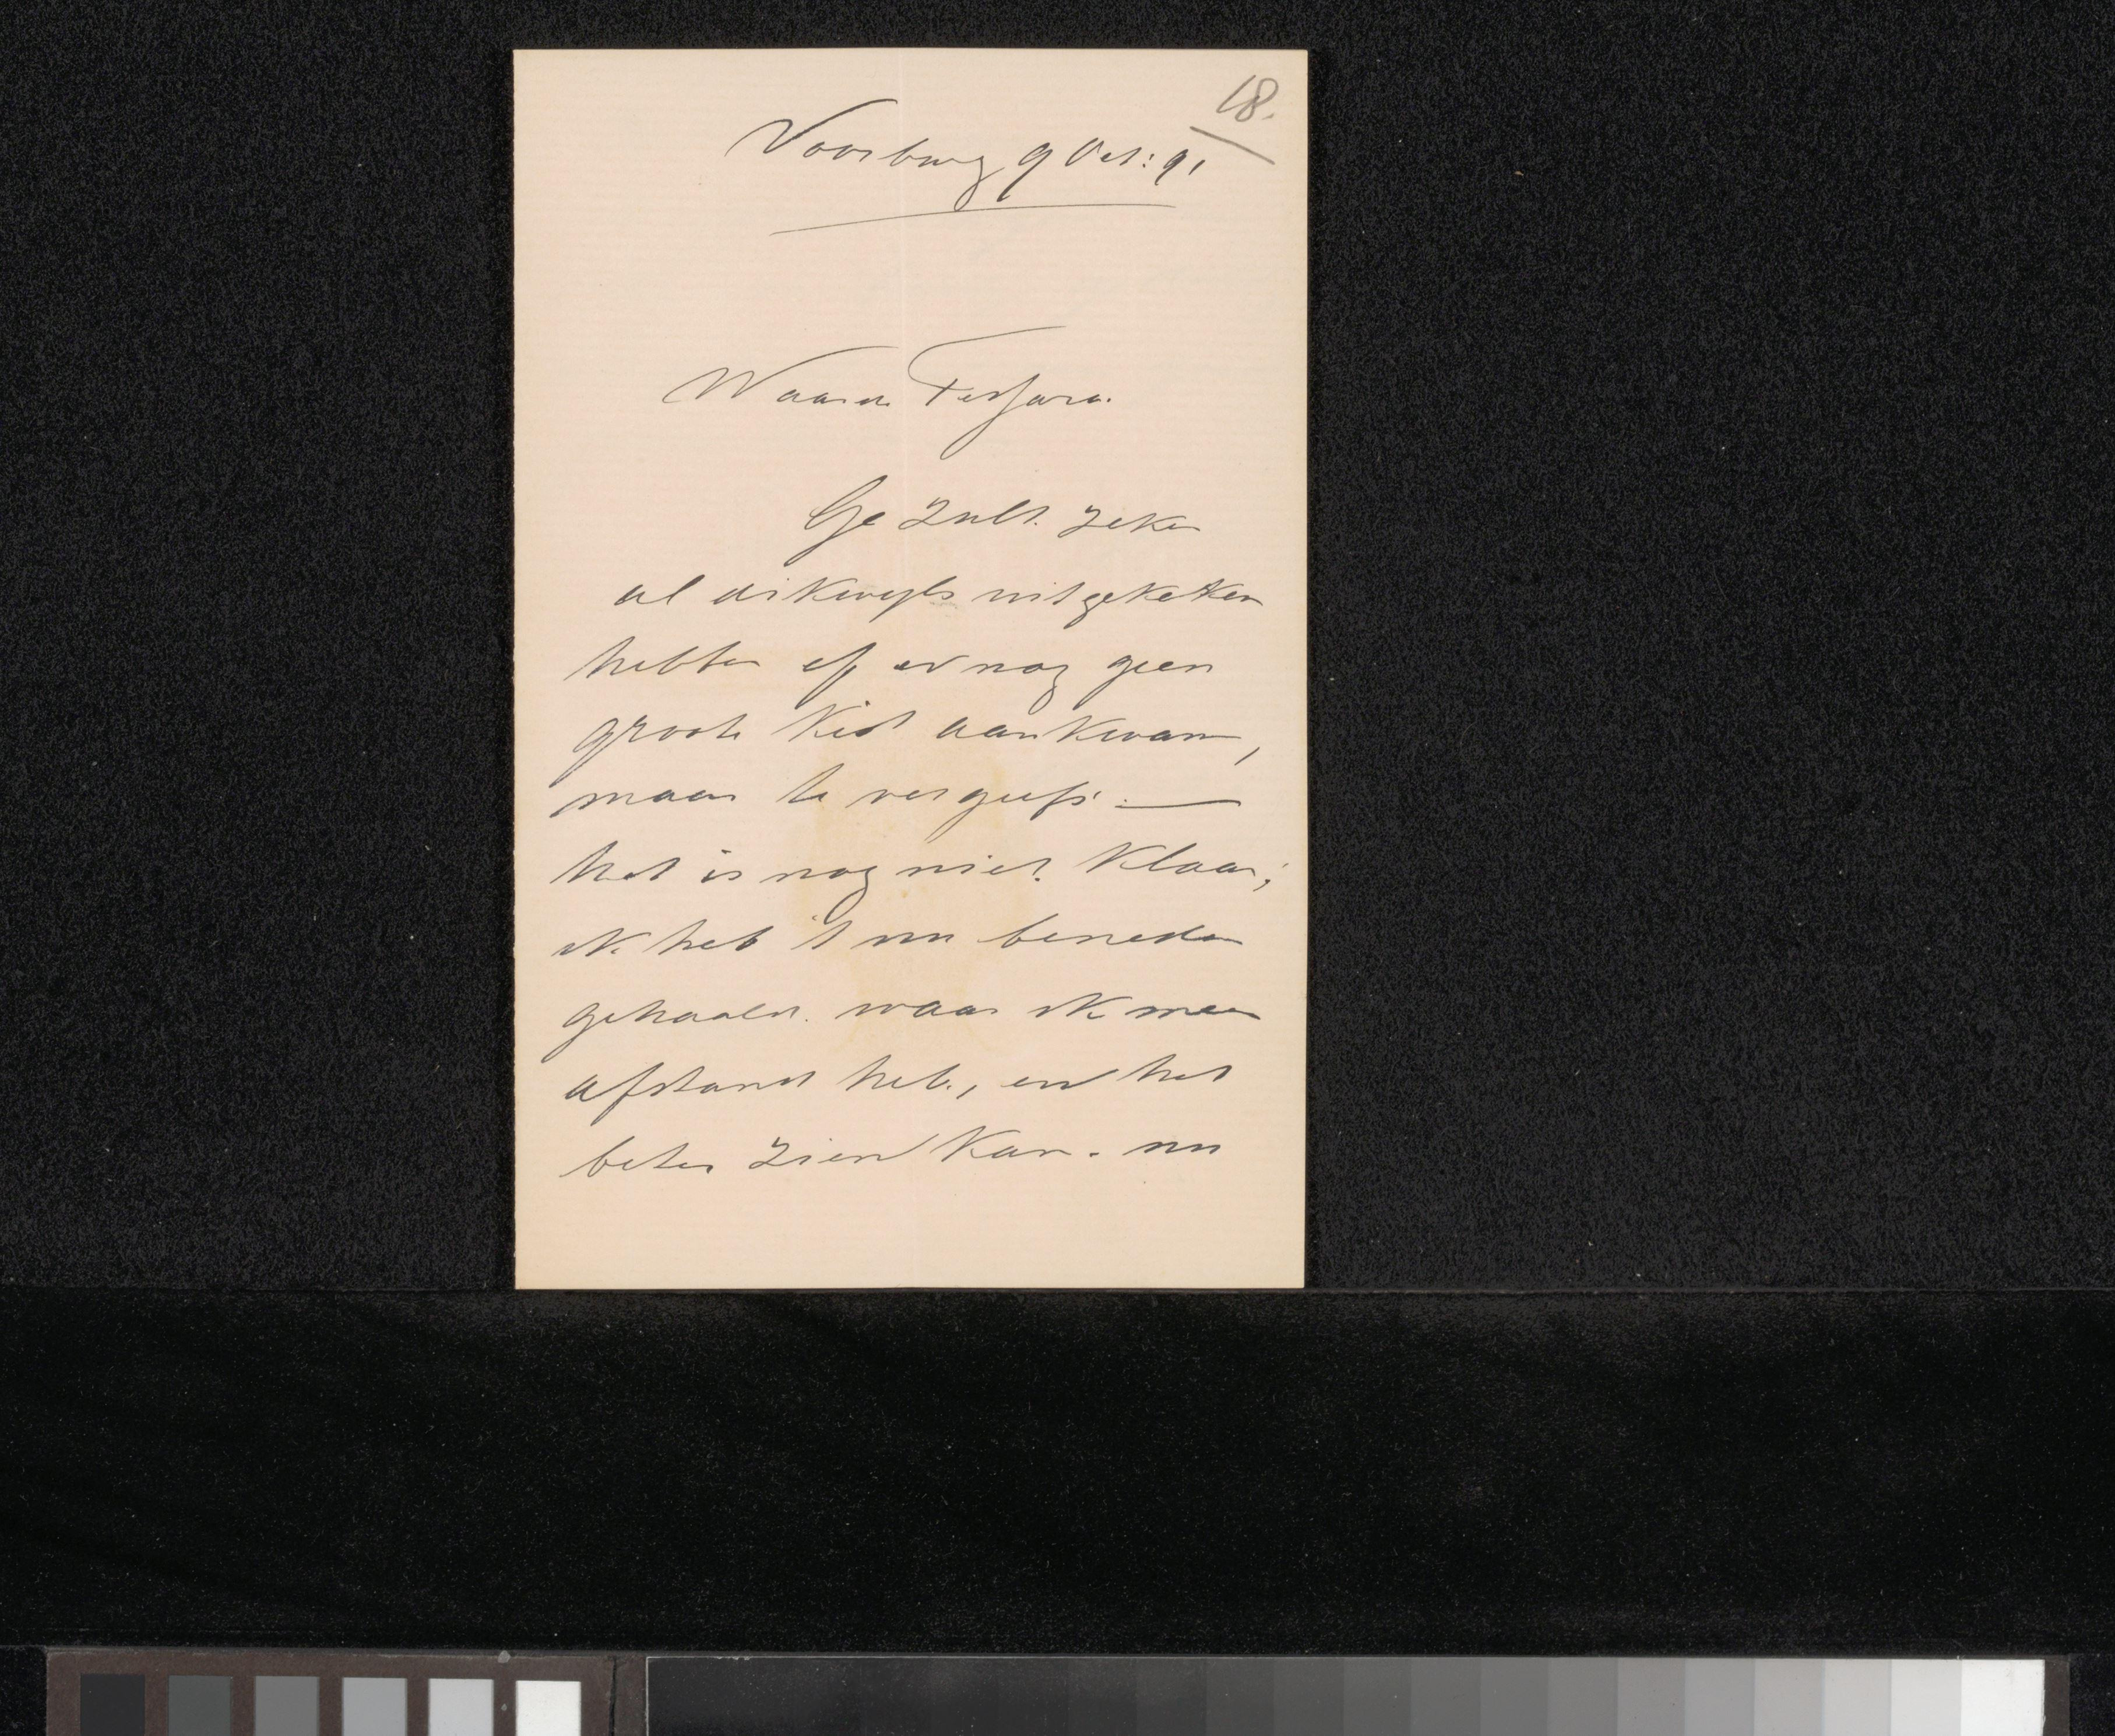 18.
Voorburg 9 Oct: 91
Waarde Tersara.
Ge zult zeker
al dikwyls uitgekeken
hebben of er nog geen
groote kist aankwam,
maar te vergeefs. —
het is nog niet klaar;
ik heb 't nu beneden
gehaald. waar ik meer
afstand heb, en het
beter zien kan. nu